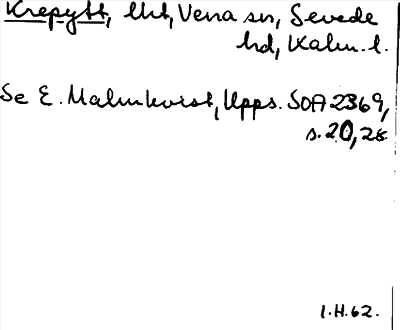 Krepytt, Uht, Vena sn, Sevede
hd, Kalm. l.
Se E. Malmkvist, Upps. SOA 2369,
s. 20, 28
I.H.62.